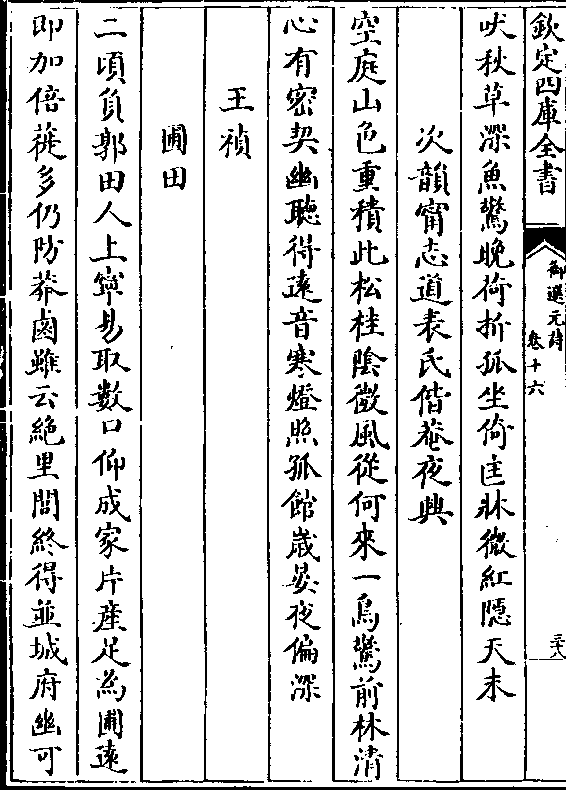 欽定四庫全書
御選元詩
卷十六
三十八
吠秋草深魚驚晚荷折孤坐倚匡牀微紅隱天末
次韻甯志道表氏偕菴夜興
空庭山色重積此松桂陰微風從何來一鳥驚前林清
心有密契幽聽得遠音寒燈照孤館歲晏夜偏深
王禎
圃田
二頃負郭田人上寧易取數口仰成家片產足為圃遠
即加倍蓰多仍防莽鹵雖云絶里閭終得並城府幽可